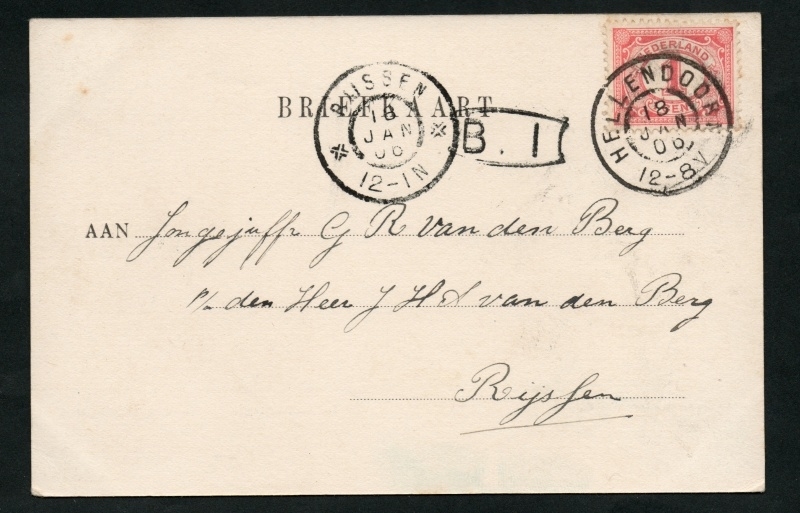 NEDERLAND
1
CENT
BRIEFKAART
RIJSSEN
18
JAN
06
12-1N
B. 1
HELLENDOORN
18
JAN
06
12-8V
AAN Jongejuffr G R van den Berg
p/a den Heer J H A van den Berg
Rijssen